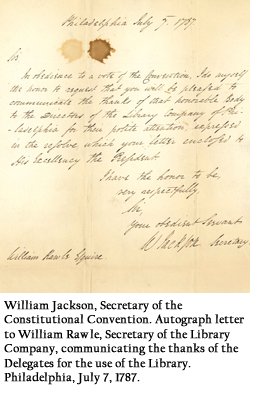 Philadelphia July 7th 1787.
Sir
In obedience to a vote of the Convention, I do myself
the honor to request that you will be pleased to
communicate the thanks of that honorable Body
to the Directors of the Library Company of Phi-
-ladelphia for their polite attention expressed
in the resolve which your letter enclosed to
His Excellency the President
I have the honor to be,
very respectfully
Sir,
your obedient Servant
W Jackson Secretary
William Rawle Esquire
William Jackson, Secretary of the
Constitutional Convention. Autograph letter
to William Rawle, Secretary of the Library
Company, communicating the thanks of the
Delegates for the use of the Library.
Philadelphia, July 7, 1787.